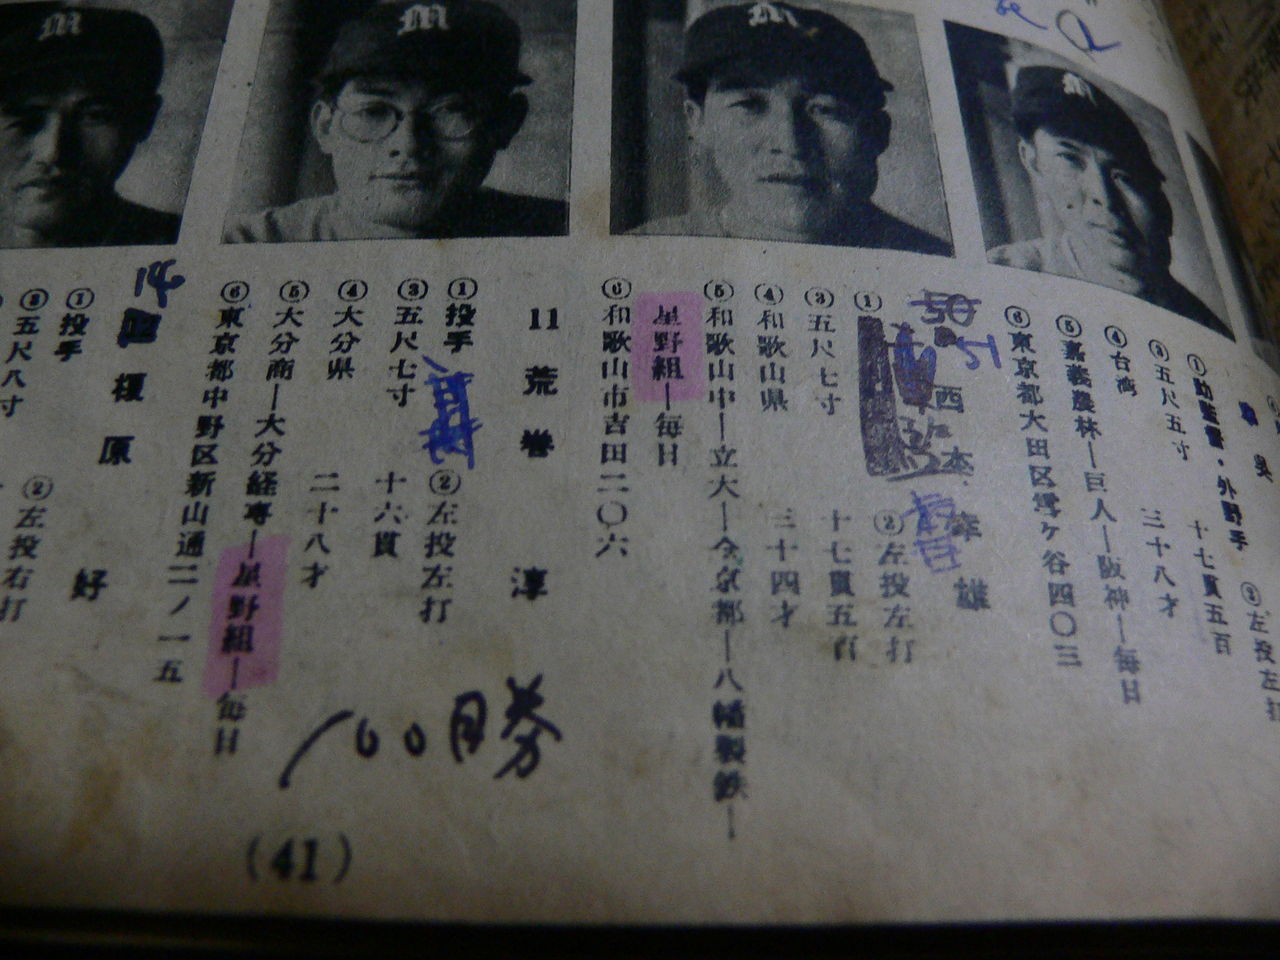 M
M
M
M
昌 呉
①助監督・外野手 ②左投左打
③五尺五寸 十七貫五百
④台湾 三十八才
⑤嘉義農林―巨人―阪神―毎日
⑥東京都大田区雪ヶ谷四〇三
50
51
西本幸雄
① ②左投左打
③五尺七寸 十七貫五百
④和歌山県 三十四才
⑤和歌山中―立大―全京都―八幡製鉄―
星野組―毎日
⑥和歌山市吉田二〇六
11 荒巻淳
①投手 ②左投左打
③五尺七寸 十六貫
④大分県 二十八才
⑤大分商―大分経専―星野組―毎日
⑥東京都中野区新山通二ノ一五
100勝
12 榎原好
①投手 ②左投右打
③五尺八寸
(41)